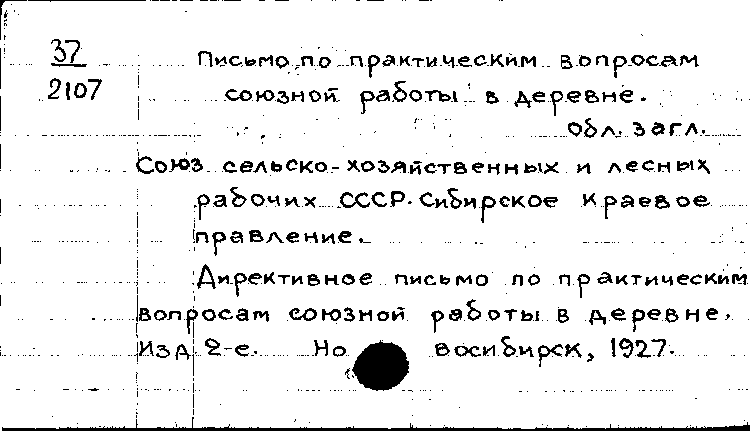 37
2107
Письмо по практическим вопросам
союзной работы в деревне.
Обл. загл.
Союз сельско-хозяйственных и лесных
рабочих СССР. Сибирское краевое
правление.
Директивное письмо по практическим
вопросам союзной работы в деревне.
Изд 2-е. Но восибирск, 1927.